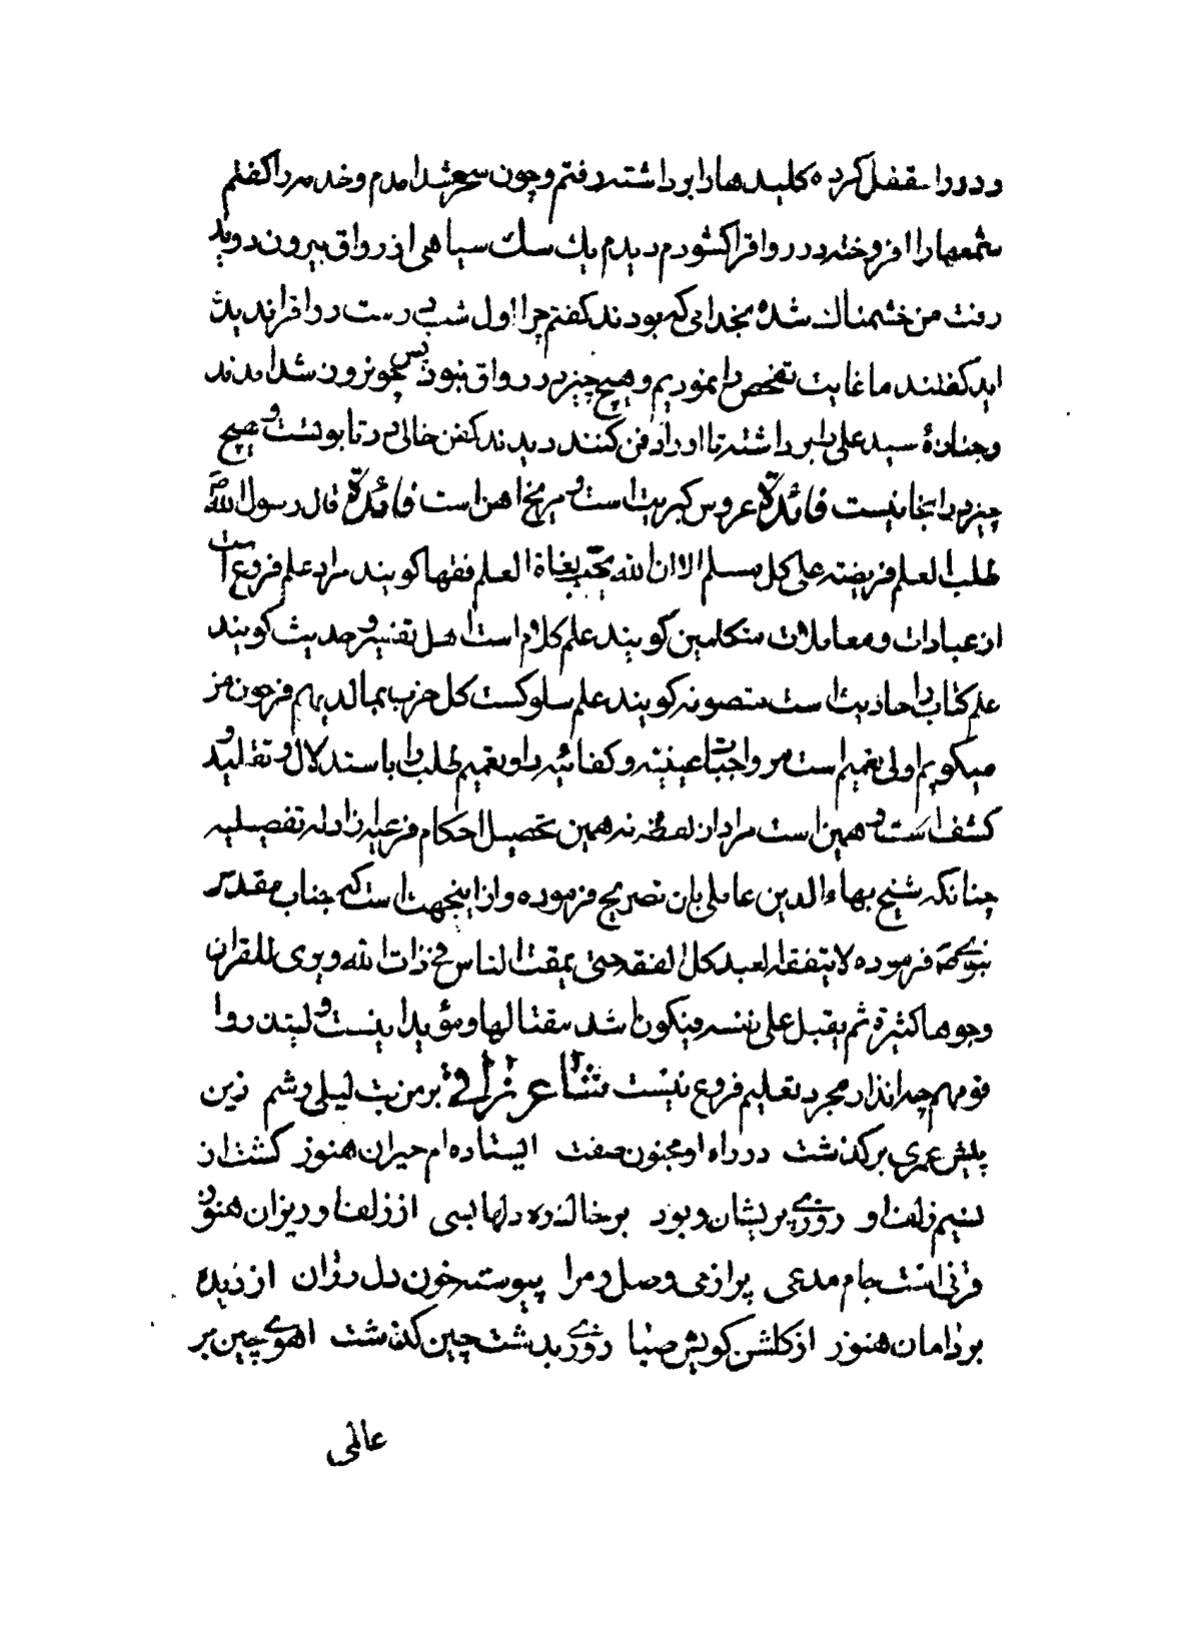 و در را مقفل کرده کلید ها را برداشته رفتم و چون سحر شد امدم و خدمه را کفتم
شمعها را افروخته در رواق را کشودم دیدم یك سك سیاهی از رواق بیرون دوید
رفت من خشمناك شده بخدامی که بودند کفتم چرا اول شب درست رواق را ندیده
اید کفتند ما غایت تفحص را نمودیم و هیچ چیز در رواق نبود پس چون بیرون شد امدند
و جنازۀ سید علی را برداشته تا او را دفن کنند دیدند کفن خالی در تابوتست و هیچ
چیز در انجا نیست فائدة عروس کبریت است و مریخ اهن است فائدة قال رسول الله ص
طلب العلم فریضته علی کل مسلم الا ان الله یحب بغاة العلم فقها کویند مراد علم فروع است
از عبادات و معاملات متکلمین کویند علم کلام است اهل تفسیر و حدیث کویند
علم کتاب و احادیث است متصوفه کویند علم سلوکست کل حزب بما لدیهم فرحون من
میکویم اولی تعمیم است مر واجبات عینیه و کفائیه را و تعمیم طلب را باستدلال و تقلید و
کشف است و همین است مراد از تفقه نه همین تحصیل احکام فرعیه از ادله تفصیلیه
چنانکه شیخ بهاء الدین عاملی بان تصریح فرموده و از اینجهت است که جناب مقدس
نبوی ص فرموده لا یتفقه العبد کل الفقه حتی یمقت الناس فی ذات الله و یری للقران
وجوها کثیرة ثم یقبل علی نفسه فیکون اشد مقتا لها و مؤید اینست و لینذروا
قومهم چه انذار مجرد تعلیم فروع نیست نشاء عر نراقی بر من شب لیلی وشم زین
پیش عمری برکذشت در راه او مجنون صفت ایستاده ام حیران هنوز کشت از
نسیم زلف او روزی پریشان و بود بر خاك ره دلها بسی از زلف او ریزان هنوز
قرنی است جام مدعی پر از می وصل و مرا پیوسته خون دل روان از دیده
بر دامان هنوز از کلشن کویش صبا روزی بدشت چین کذشت اهوی چین بر
عالمی